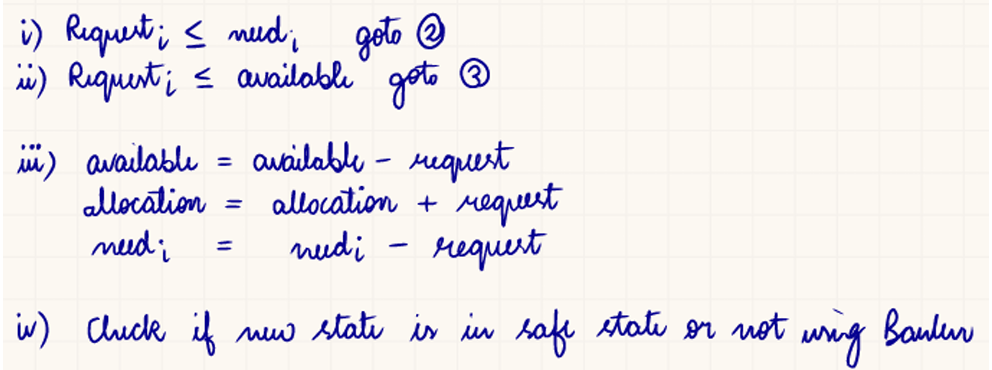 i) Requestᵢ ≤ needᵢ goto ②
ii) Requestᵢ ≤ available goto ③
iii) available = available - request
allocation = allocation + request
needᵢ = needᵢ - request
iv) Check if new state is in safe state or not using Banker